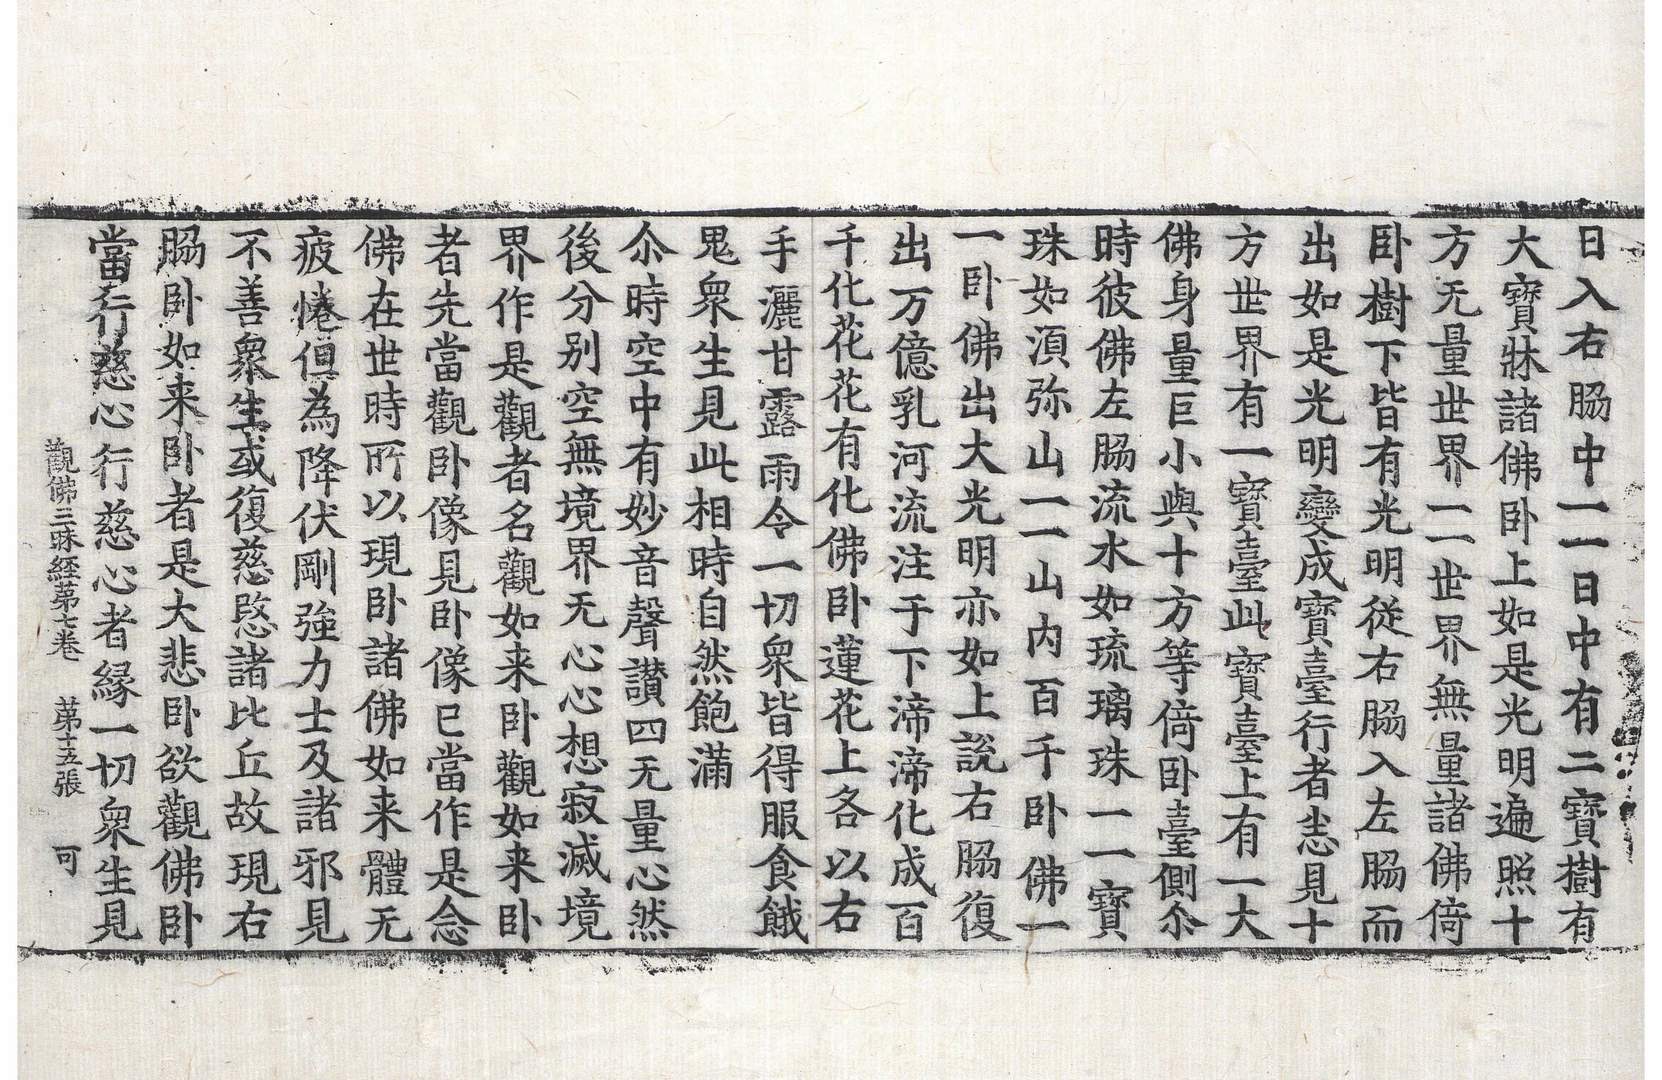 日入右脇中一一日中有二寶樹有
大寶牀諸佛卧上如是光明遍照十
方无量世界一一世界無量諸佛倚
卧樹下皆有光明從右脇入左脇而
出如是光明變成寶臺行者恙見十
方世界有一寶臺此寶臺上有一大
佛身量巨小與十方等倚卧臺側尒
時彼佛左脇流水如琉璃珠一一寶
珠如湏弥山一一山内百千卧佛一
一卧佛出大光明亦如上說右脇復
出万億乳河流注于下渧渧化成百
千化花花有化佛卧蓮花上各以右
手灑甘露雨令一切衆皆得服食餓
鬼衆生見此相時自然飽滿
尒時空中有妙音聲讃四无量心然
後分别空無境界无心心想寂滅境
界作是觀者名觀如来卧觀如来卧
者先當觀卧像見卧像已當作是念
佛在世時所以現卧諸佛如来體无
疲惓但為降伏剛強力士及諸邪見
不善衆生或復慈愍諸比丘故現右
脇卧如来卧者是大悲卧欲觀佛卧
當行慈心行慈心者縁一切衆生見
觀佛三昧經苐七卷 苐十五張 可